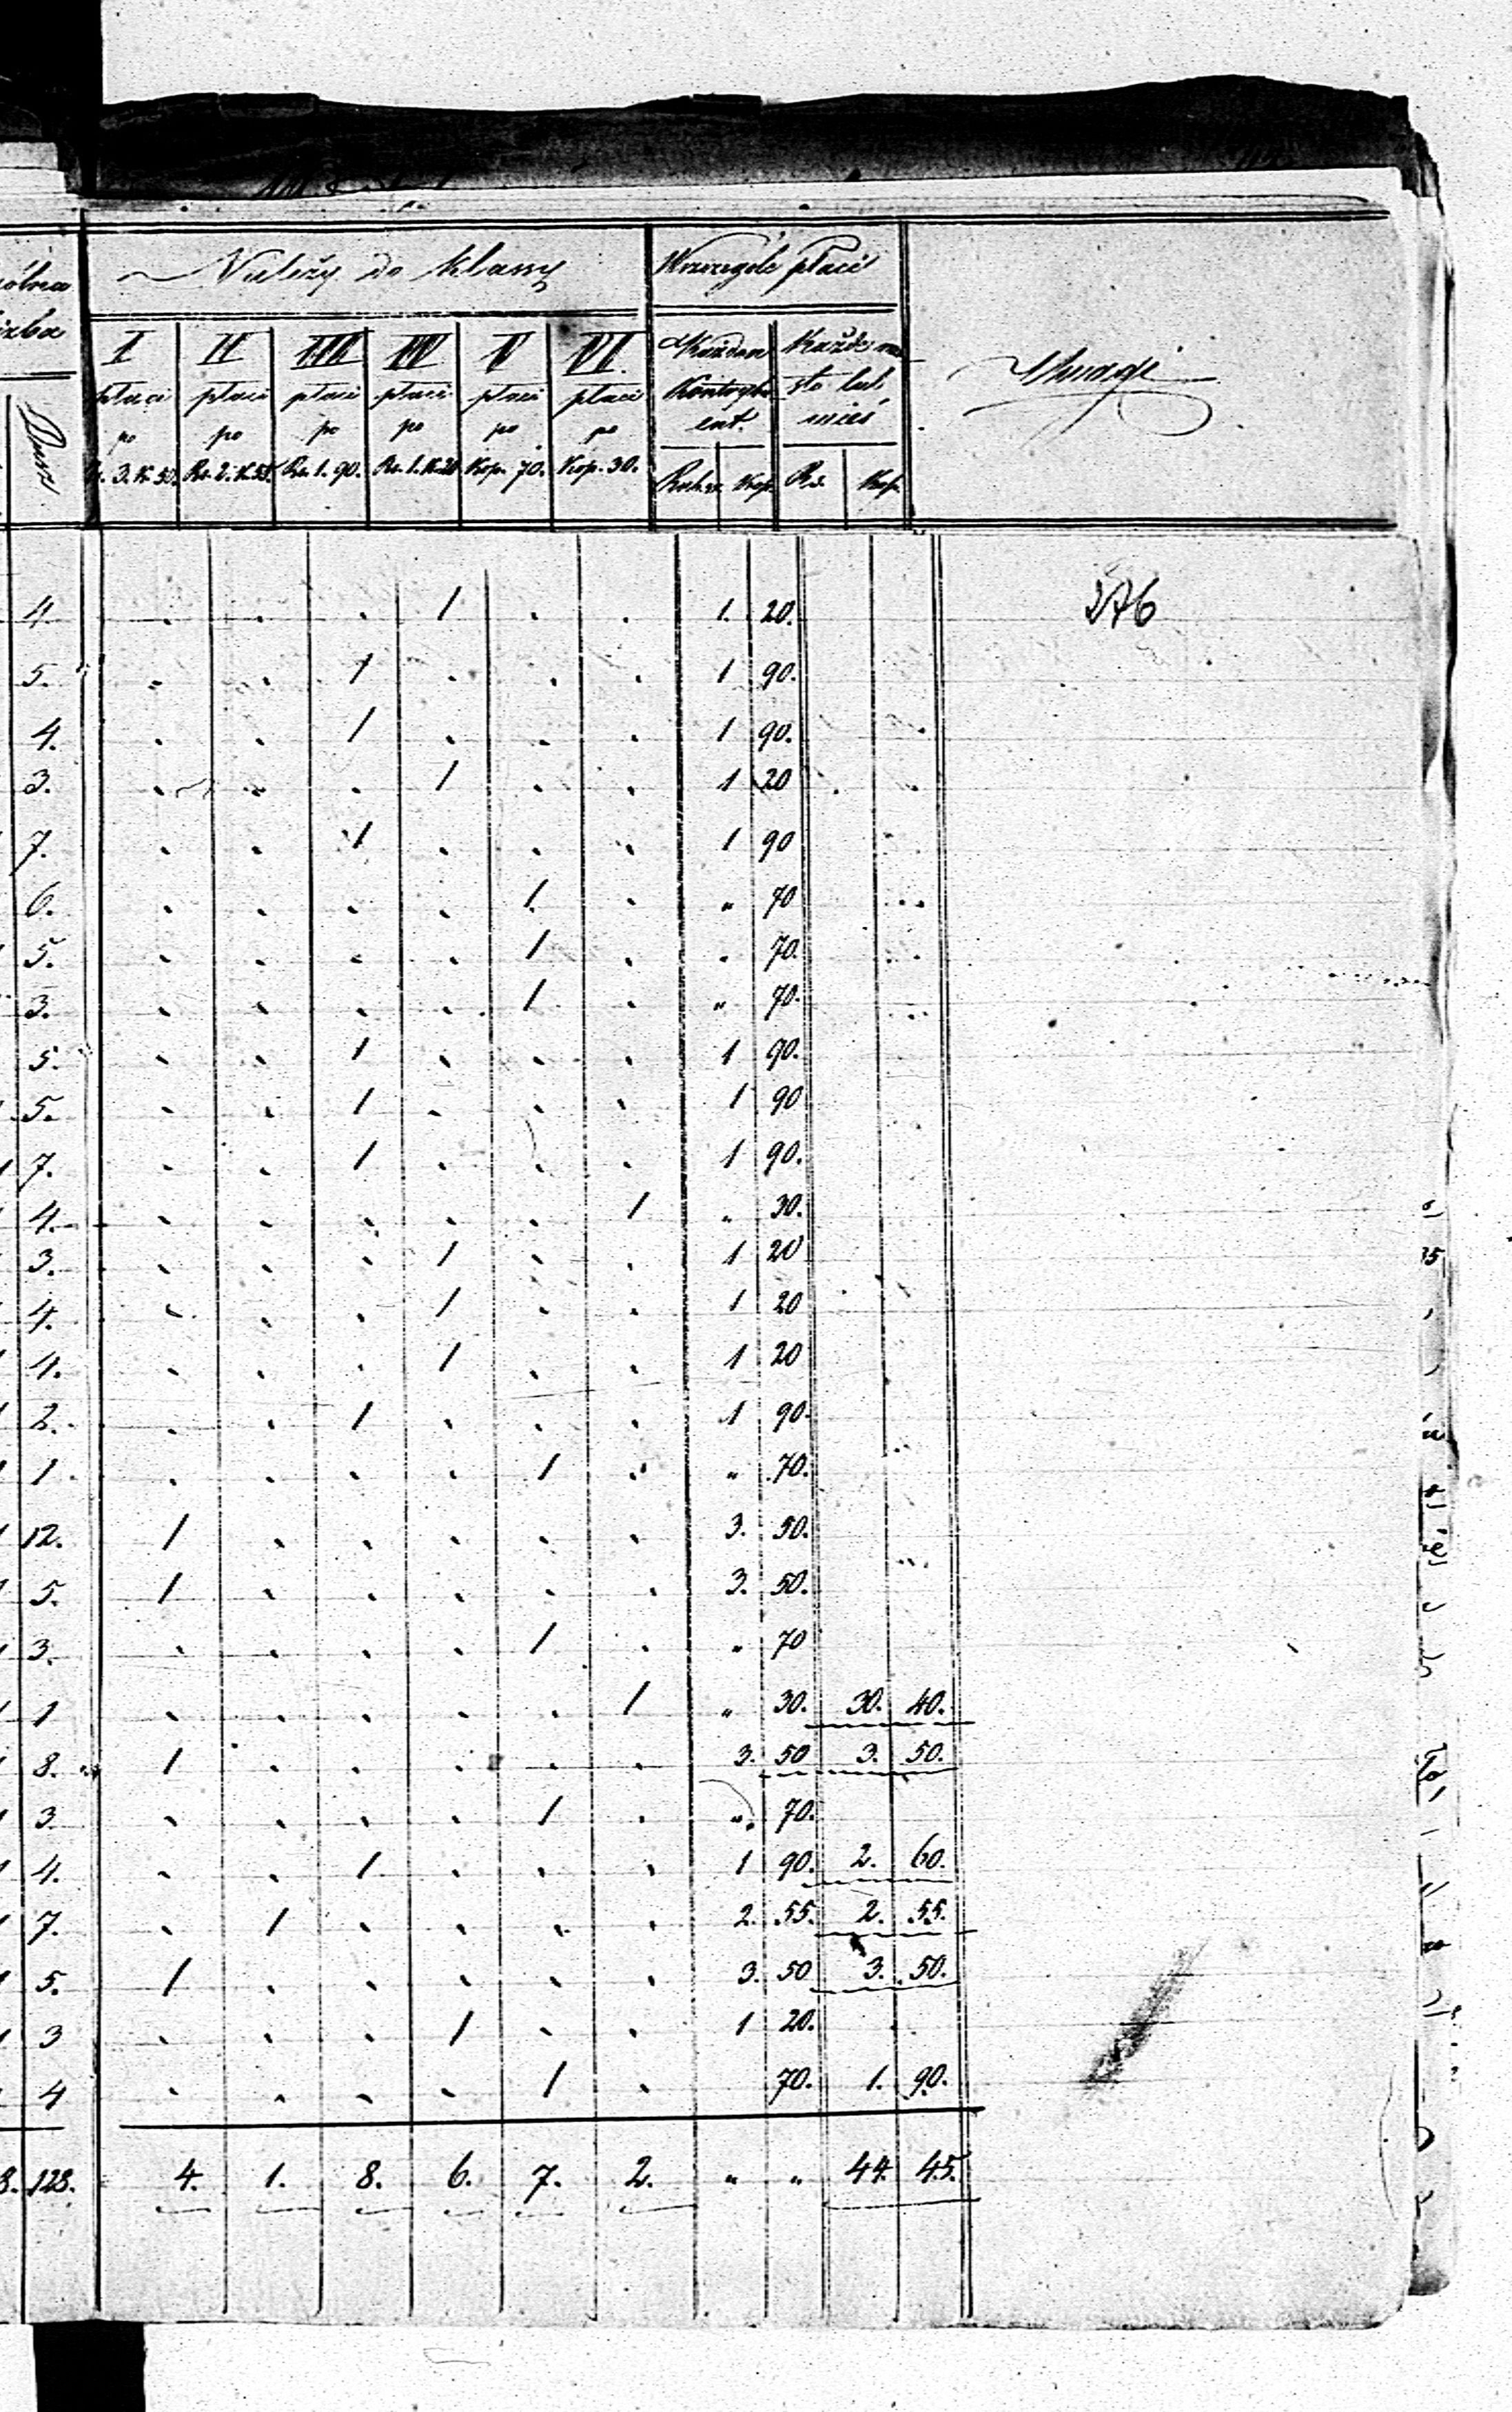 Należy do klassy Wszczególe płaci Uwagi
I II III IV V VI. Każden Kontrybuent. Każde miasto lub wieś
płaci po Rs. 3. K. 50. płaci po Rs. 2. K. 55. płaci po Rs. 1. 90. płaci po Rs. 1. K. 20 płaci po Kop. 70. płaci po Kop. 30. Rub. sr. Kop. Rs. Kop.
Dusz
276
4. . . . 1 . . 1. 20.
5. . . 1 . . . 1 90.
4. . . 1 . . . 1 90.
3. . . . 1 . . 1 20
7. . . 1 . . . 1 90
6. . . . . 1. . " 70
5. . . . . 1 . " 70.
3. . . . . 1 . " 70.
5. . . 1 . . . 1 90.
5. . . 1 . . . 1 90
7. . . 1 . . . 1 90.
4. . . . . . 1 " 30.
3. . . . 1 . . 1 20
4. . . . 1 . . 1 20
4. . . . 1 . . 1 20
2. . . 1 . . . 1 90.
1. . . . . 1 . " 70.
12. 1 . . . . . 3. 50.
5. 1 . . . . . 3. 50.
3. . . . . 1 . " 70
1 . . . . . 1 " 30. 30. 40.
8. 1 . . . . . 3. 50 3. 50.
3 . . . . 1 . " 70.
4. . . 1 . . . 1 90. 2. 60.
7. . 1 . . . . 2. 55. 2. 55.
5. 1 . . . . . 3. 50 3. 50.
3 . . . 1 . . 1 20.
4 . . . . 1 . 70. 1. 90.
128. 4. 1. 8. 6. 7. 2. " " 44. 45.